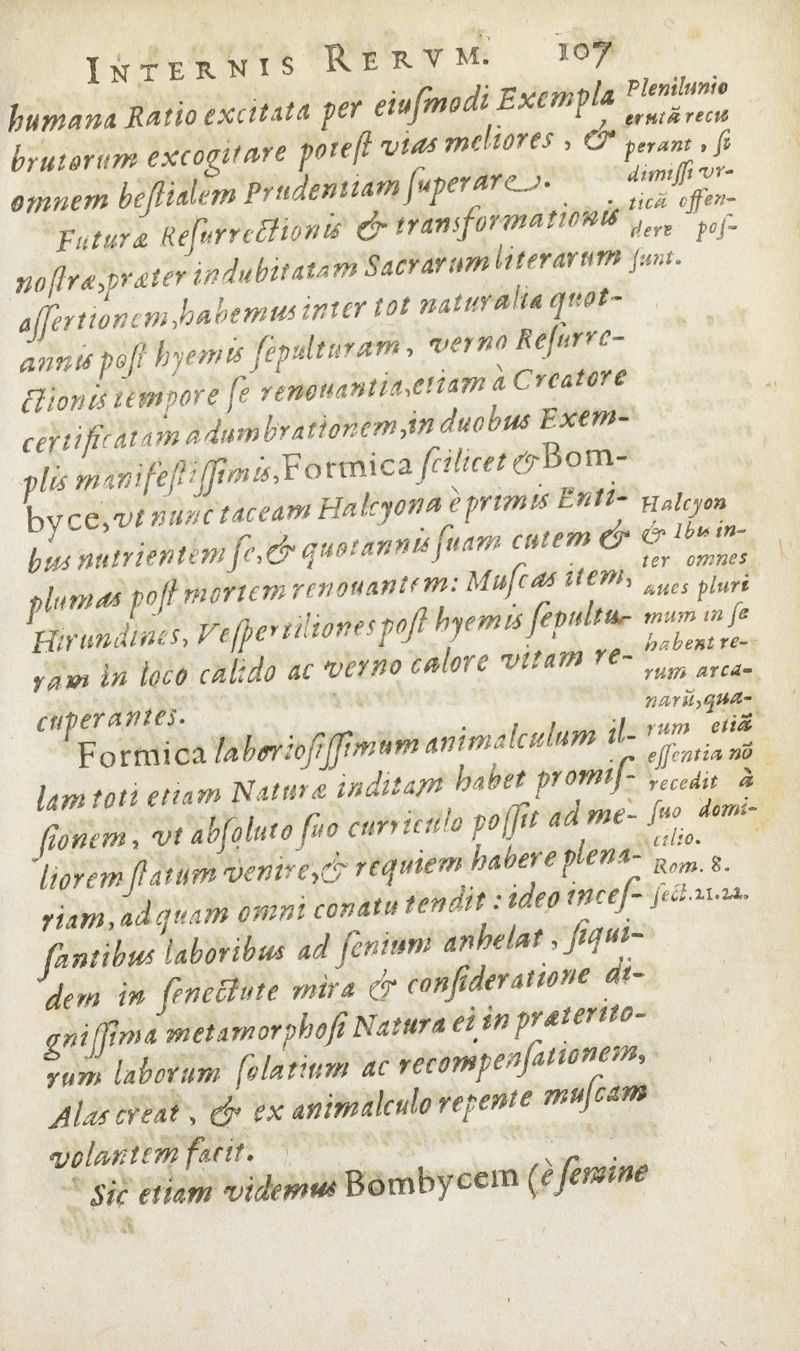 INTERNIS RERVM. 107
humana Ratio excitata per eiuſmodi Exempla
brutorum excogitare poteſt vias meliores , &
omnem beſtialem Prudentiam ſuperare.
Futuræ Reſurrectionis & transformationis
noſtræ,præter indubitatam Sacrarum literarum
aſſertionem,habemus inter tot naturalia quot-
annis poſt hyemis ſepulturam, verno Reſurre-
ctionis tempore ſe renouantia,etiam à Creatore
certificatam adumbrationem,in duobus Exem-
plis manifeſtiſſimis,Formica ſcilicet & Bom-
byce,vt nunc taceam Halcyona è primis Enti-
bus nutrientem ſe,& quotannis ſuam cutem &
plumas poſt mortem renouantem: Muſcas item,
Hirundines, Veſpertiliones poſt hyemis ſepultu-
ram in loco calido ac verno calore vitam re-
cuperantes.
Formica laborioſiſſimum animalculum il-
lam toti etiam Naturæ inditam habet promiſ-
ſionem, vt abſoluto ſuo curriculo poſſit ad me-
liorem ſtatum venire,& requiem habere plena-
riam, ad quam omni conatu tendit : ideo inceſ-
ſantibus laboribus ad ſenium anhelat , ſiqui-
dem in ſenectute mira & conſideratione di-
gniſſima metamorphoſi Natura ei in præterito-
rum laborum ſolatium ac recompenſationem,
Alas creat , & ex animalculo repente muſcam
volantem facit.
Sic etiam videmus Bombycem (è ſemine
Plenilunio
erutã recu
perant , ſi
dimiſſi vr-
ticã offen-
dere poſ-
ſunt.
Halcyon
& Ibis in-
ter omnes
aues pluri
mum in ſe
habent re-
rum arca-
narũ,qua-
rum etiã
eſſentia nõ
recedit à
ſuo domi-
cilio.
Rom. 8.
ſect.21.22.